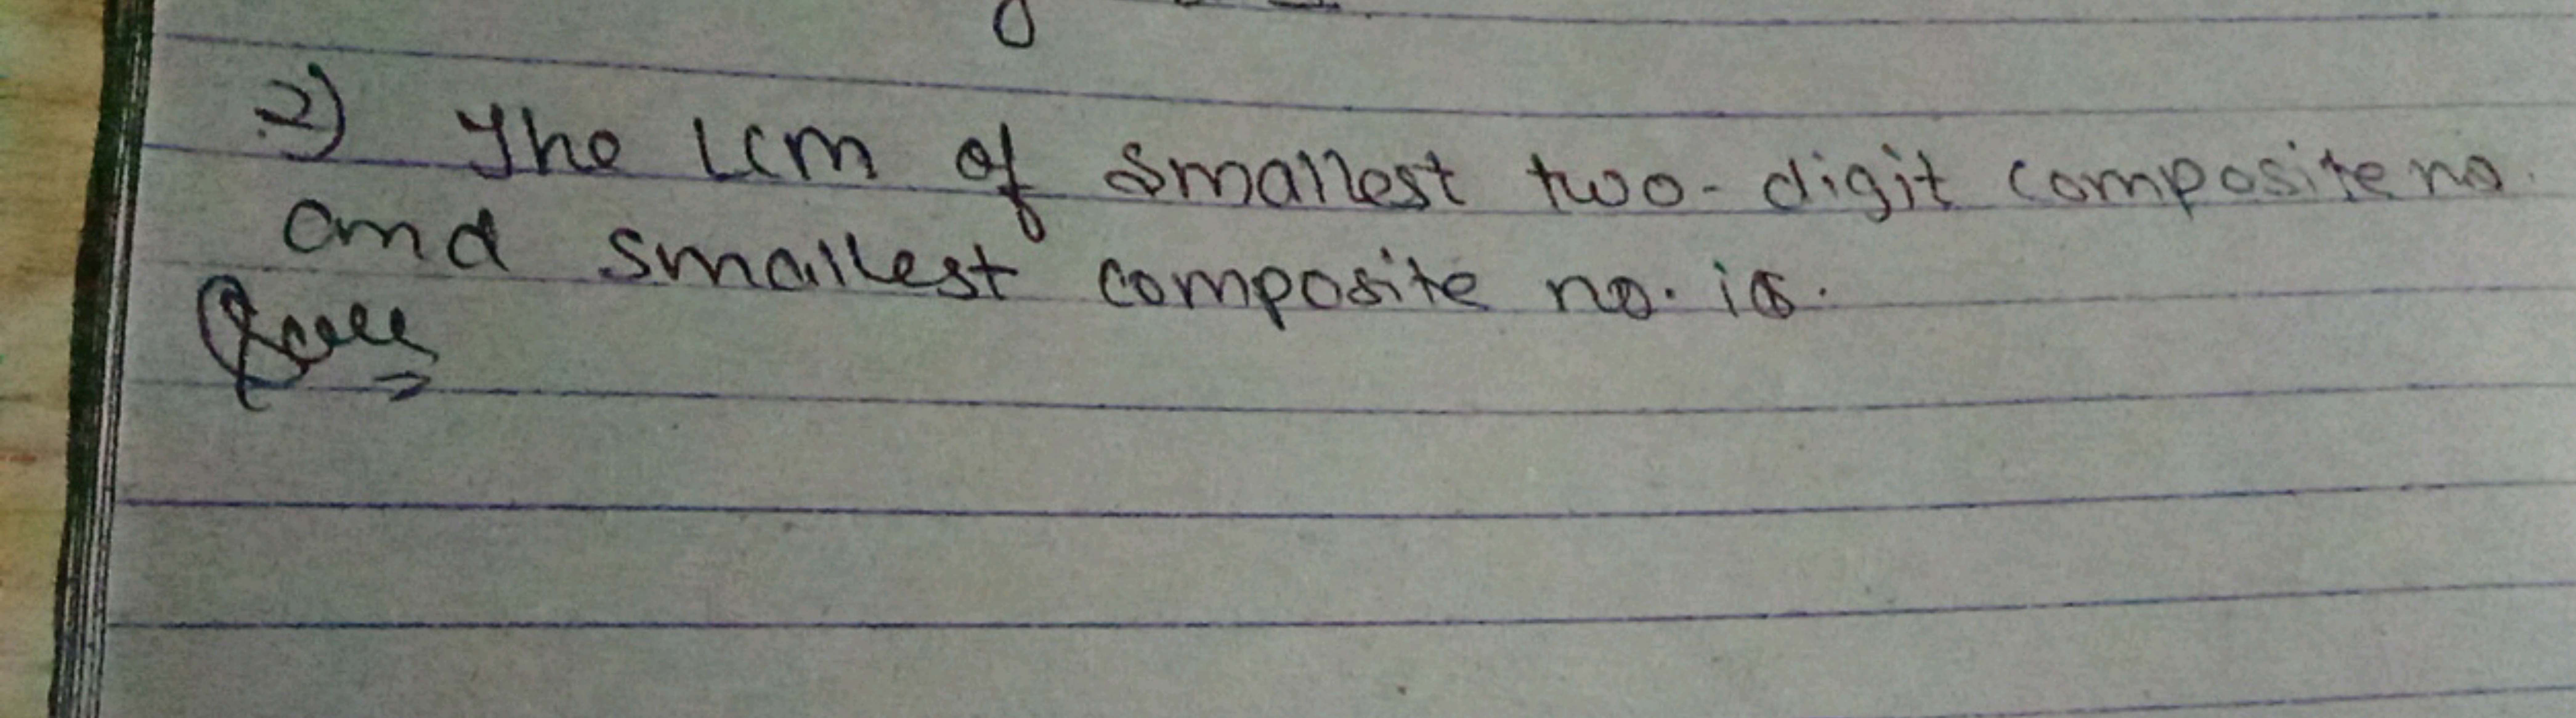 2) The LCM of smallest two-digit composite no.
and smallest composite no. is.